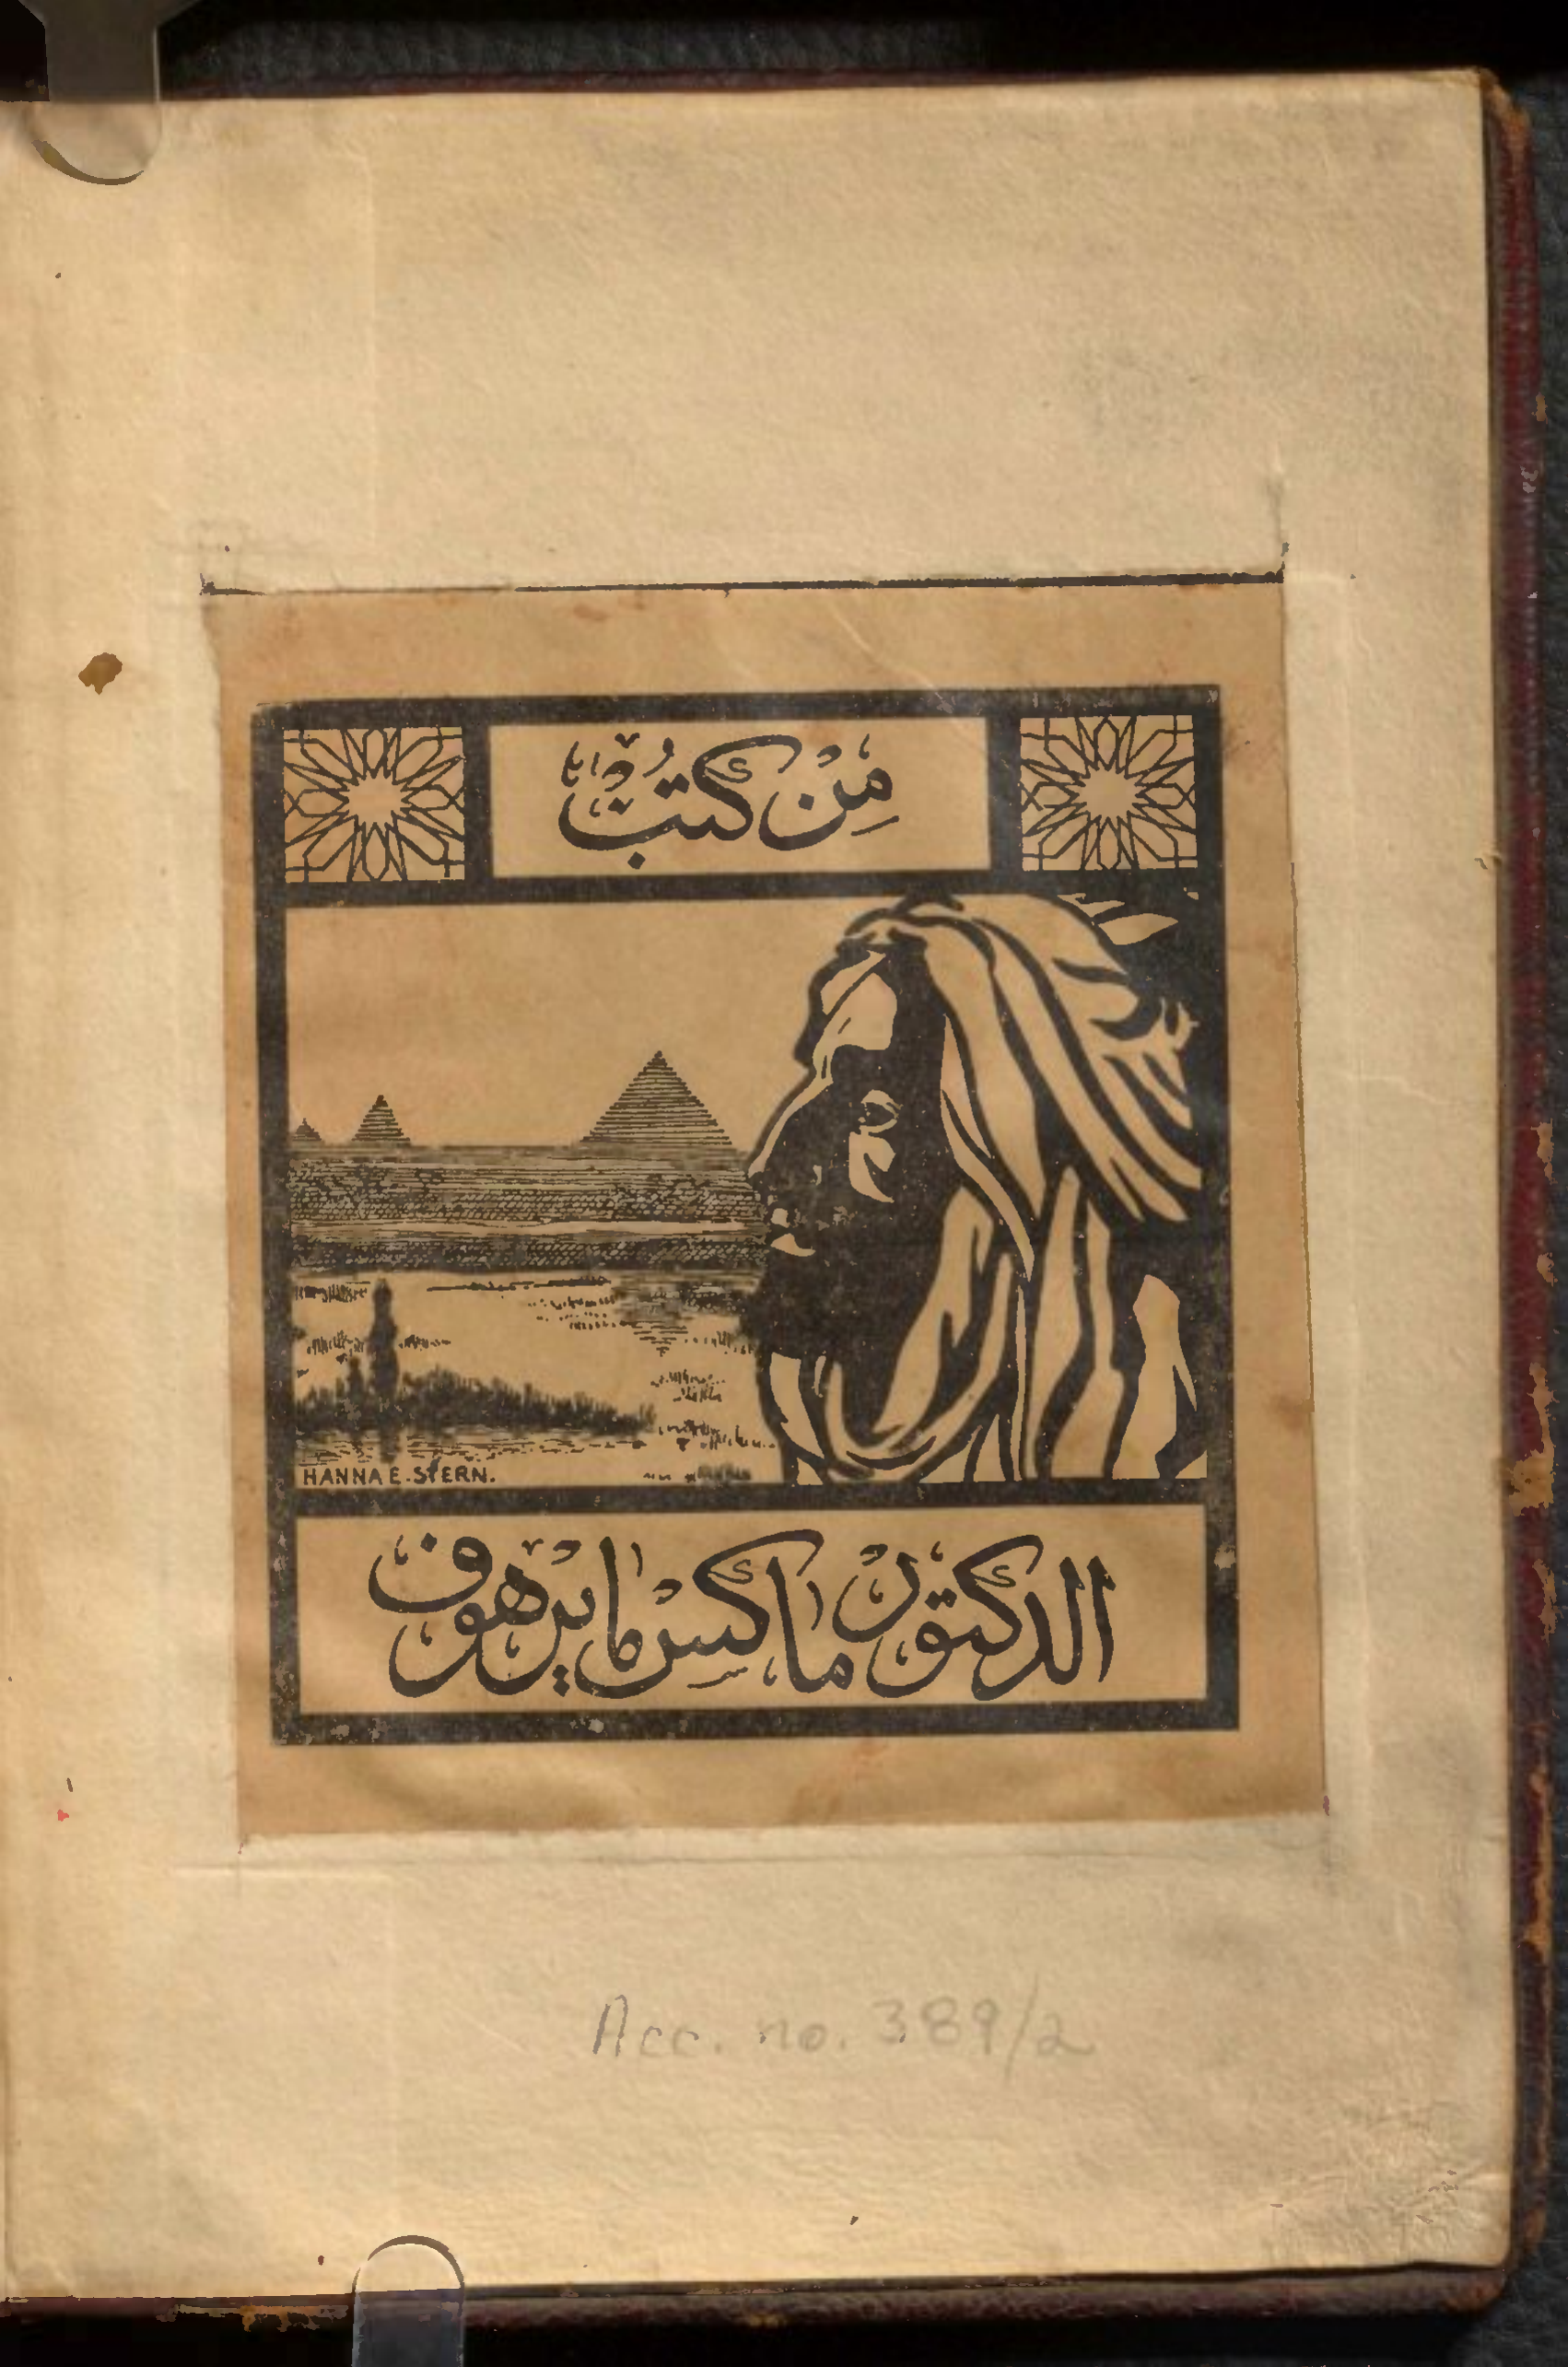 مِنْ كُتُبْ
HANNA E. STERN.
الدكتور ماكس مايرهوف
Acc. no. 389/2